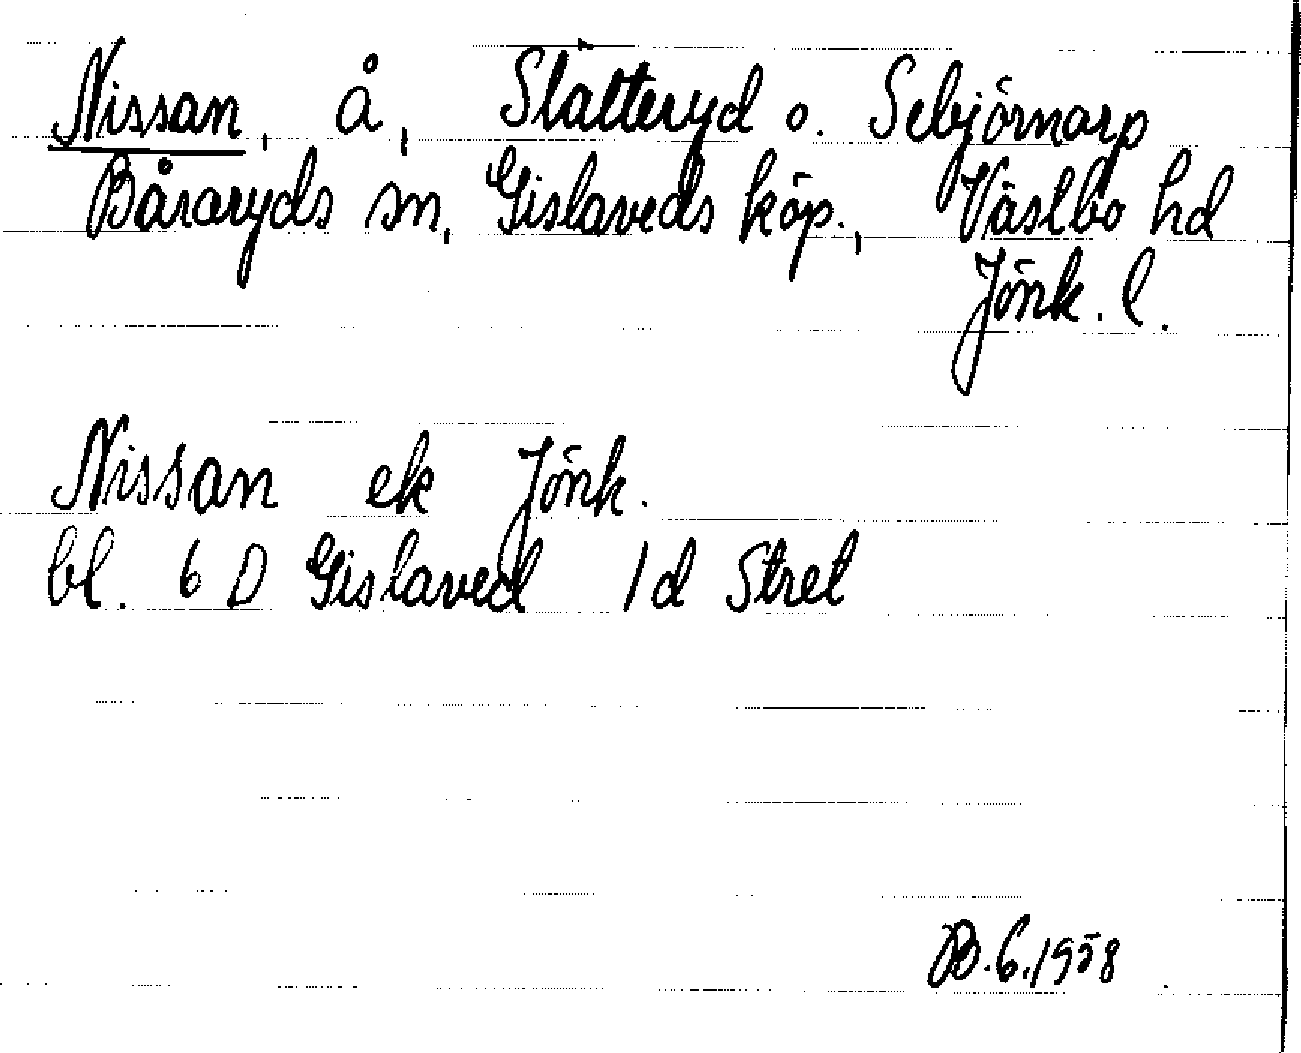 Nissan, å, Slätteryd o. Sebjörnarp
Båraryds sn, Gislaveds köp., Västbo hd
Jönk. l.
Nissan ek Jönk.
bl. 6 D Gislaved 1 d Stret
B.6.1958